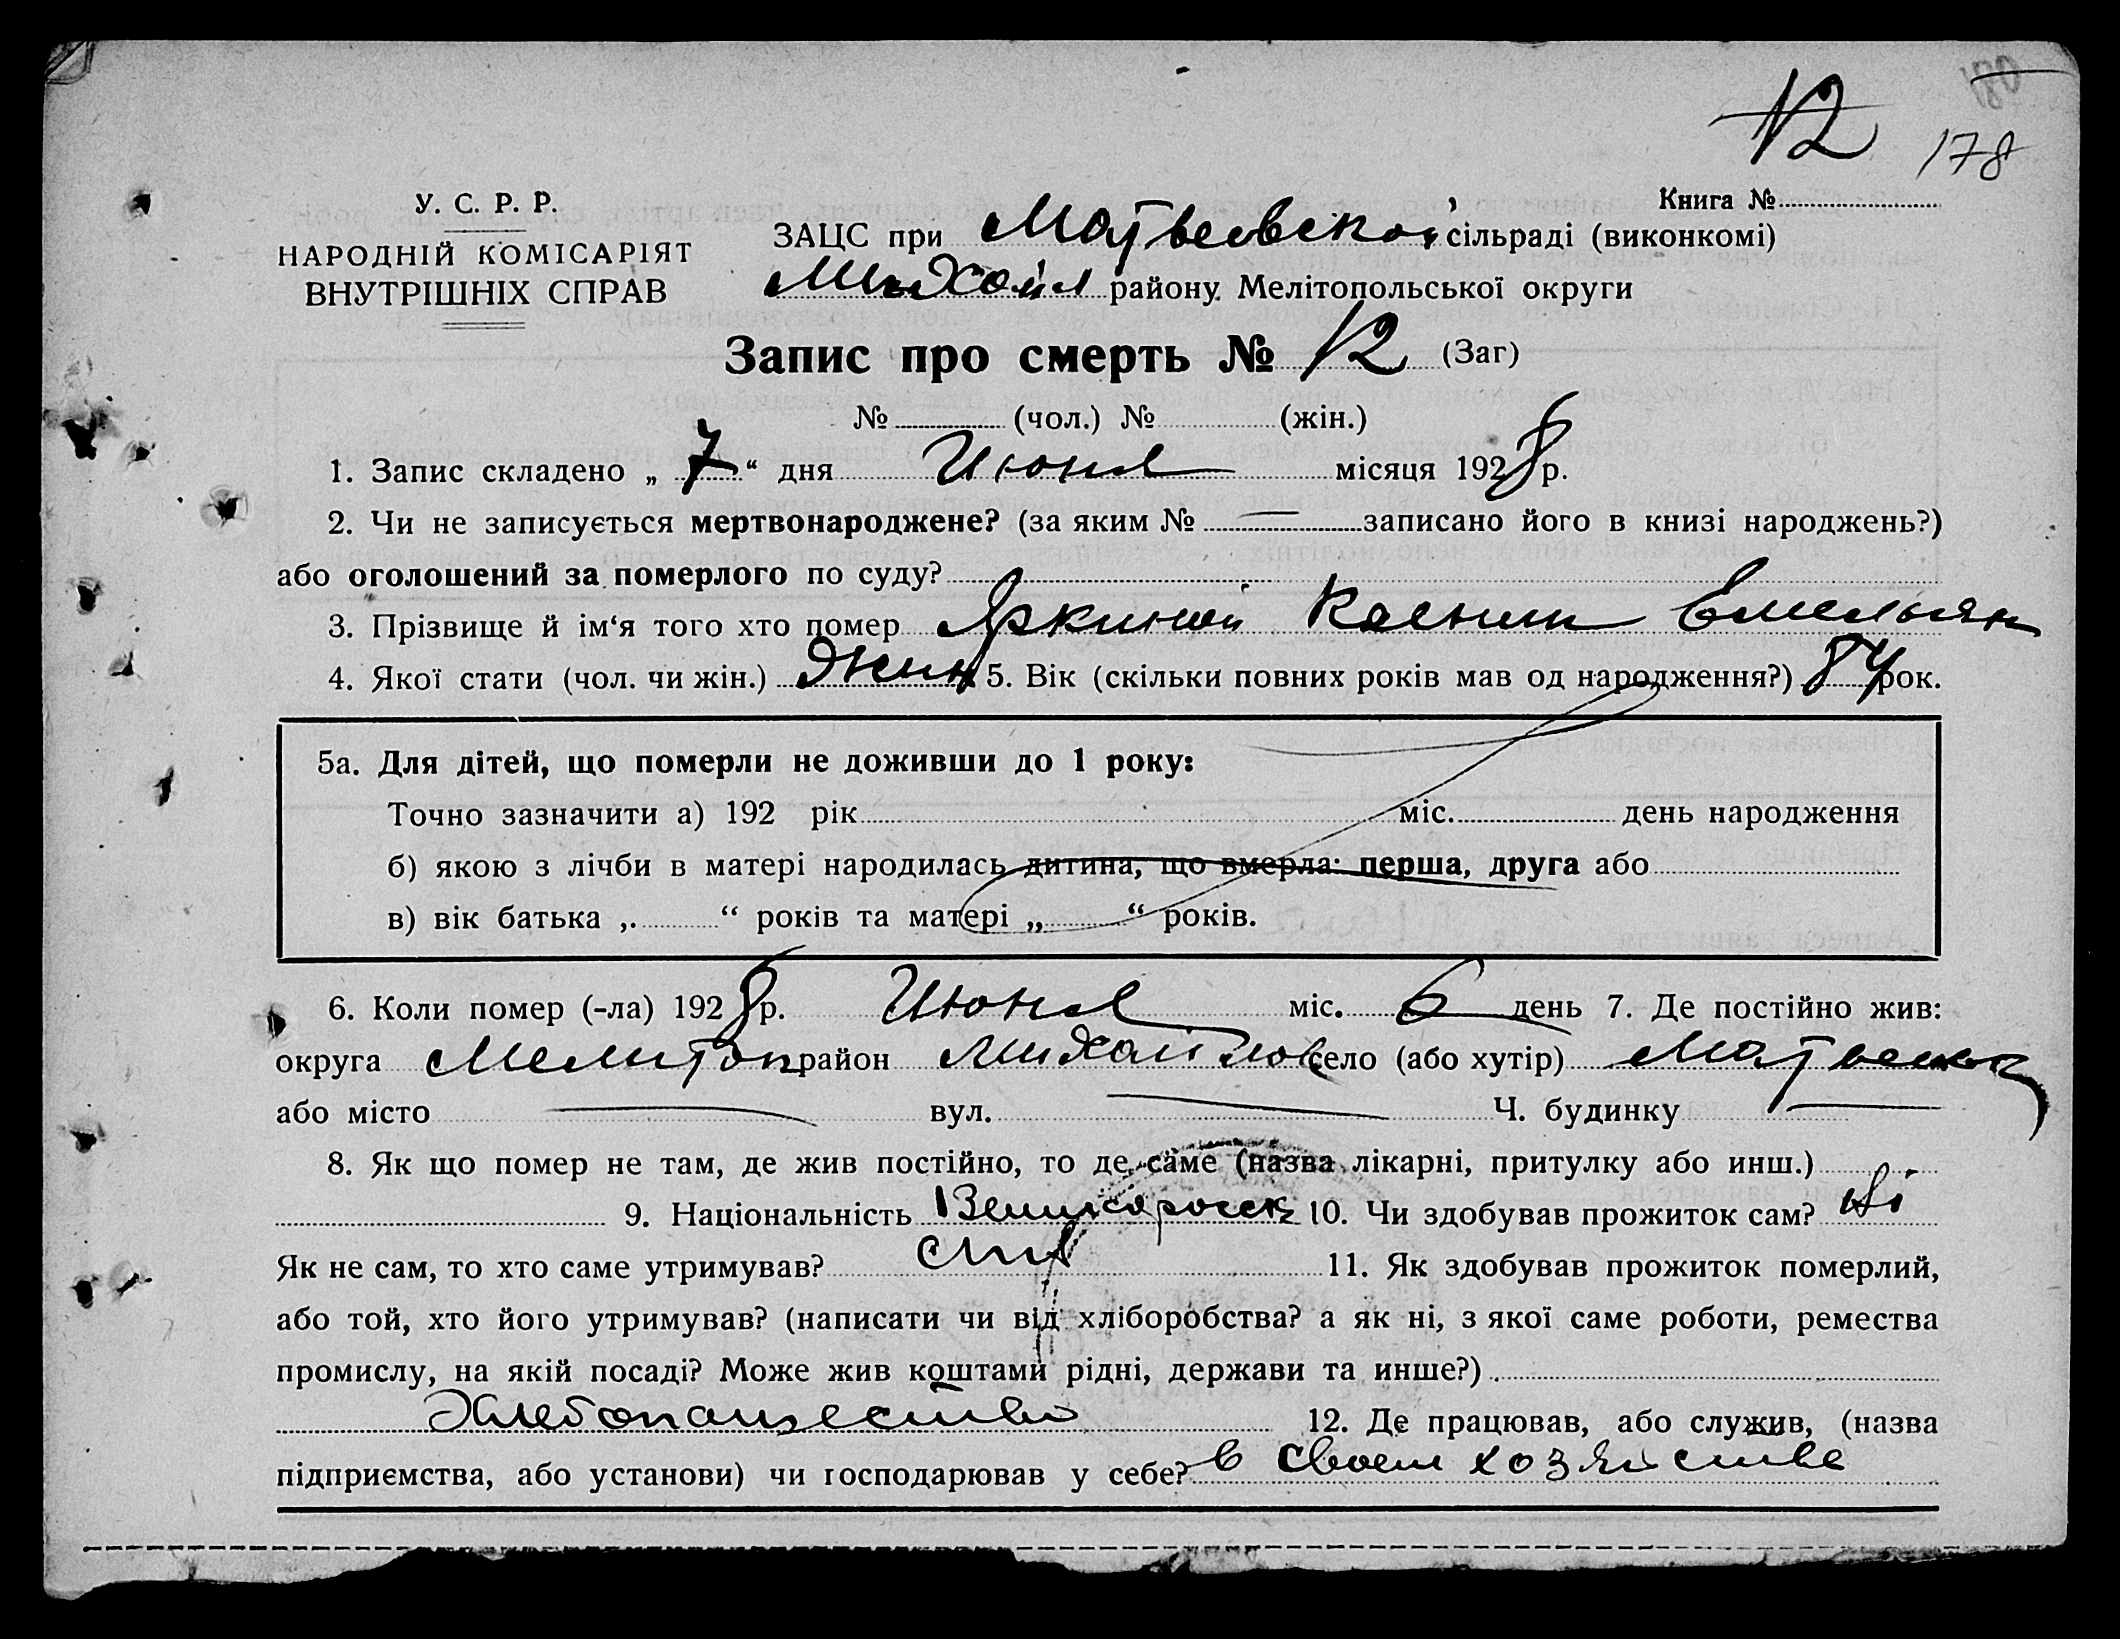 12
178
У. С. Р. Р.
НАРОДНІЙ КОМІСАРІЯТ
ВНУТРІШНІХ СПРАВ
Книга №
ЗАЦС при Матвеевской сільраді (виконкомі)
Михайл району Мелітопольської округи
Запис про смерть № 12 (Заг)
№ (чол.) № (жін.)
1. Запис складено „ 7 “ дня Июня місяця 1928 р.
2. Чи не записується мертвонароджене? (за яким № — записано його в книзі народжень?)
або оголошений за померлого по суду?
3. Прізвище й ім‘я того хто помер Яркиной Ксении Емельян
4. Якої стати (чол. чи жін.) Жин 5. Вік (скільки повних років мав од народження?) 84 рок.
5а. Для дітей, що померли не доживши до 1 року:
Точно зазначити а) 192 рік міс. день народження
б) якою з лічби в матері народилась дитина, що вмерла: перша, друга або
в) вік батька „ “ років та матері „ “ років.
6. Коли помер (-ла) 1928 р. Июня міс. 6 день 7. Де постійно жив:
округа Мелитоп район Михайлов село (або хутір) Матвеевка
або місто — вул. — Ч. будинку —
8. Як що помер не там, де жив постійно, то де саме (назва лікарні, притулку або инш.)
9. Національність Великоросск 10. Чи здобував прожиток сам? ні
Як не сам, то хто саме утримував? 11. Як здобував прожиток померлий,
або той, хто його утримував? (написати чи від хліборобства? а як ні, з якої саме роботи, ремества
промислу, на якій посаді? Може жив коштами рідні, держави та инше?)
Хлебопашество 12. Де працював, або служив, (назва
підприємства, або установи) чи господарював у себе? в своем хозяйстве